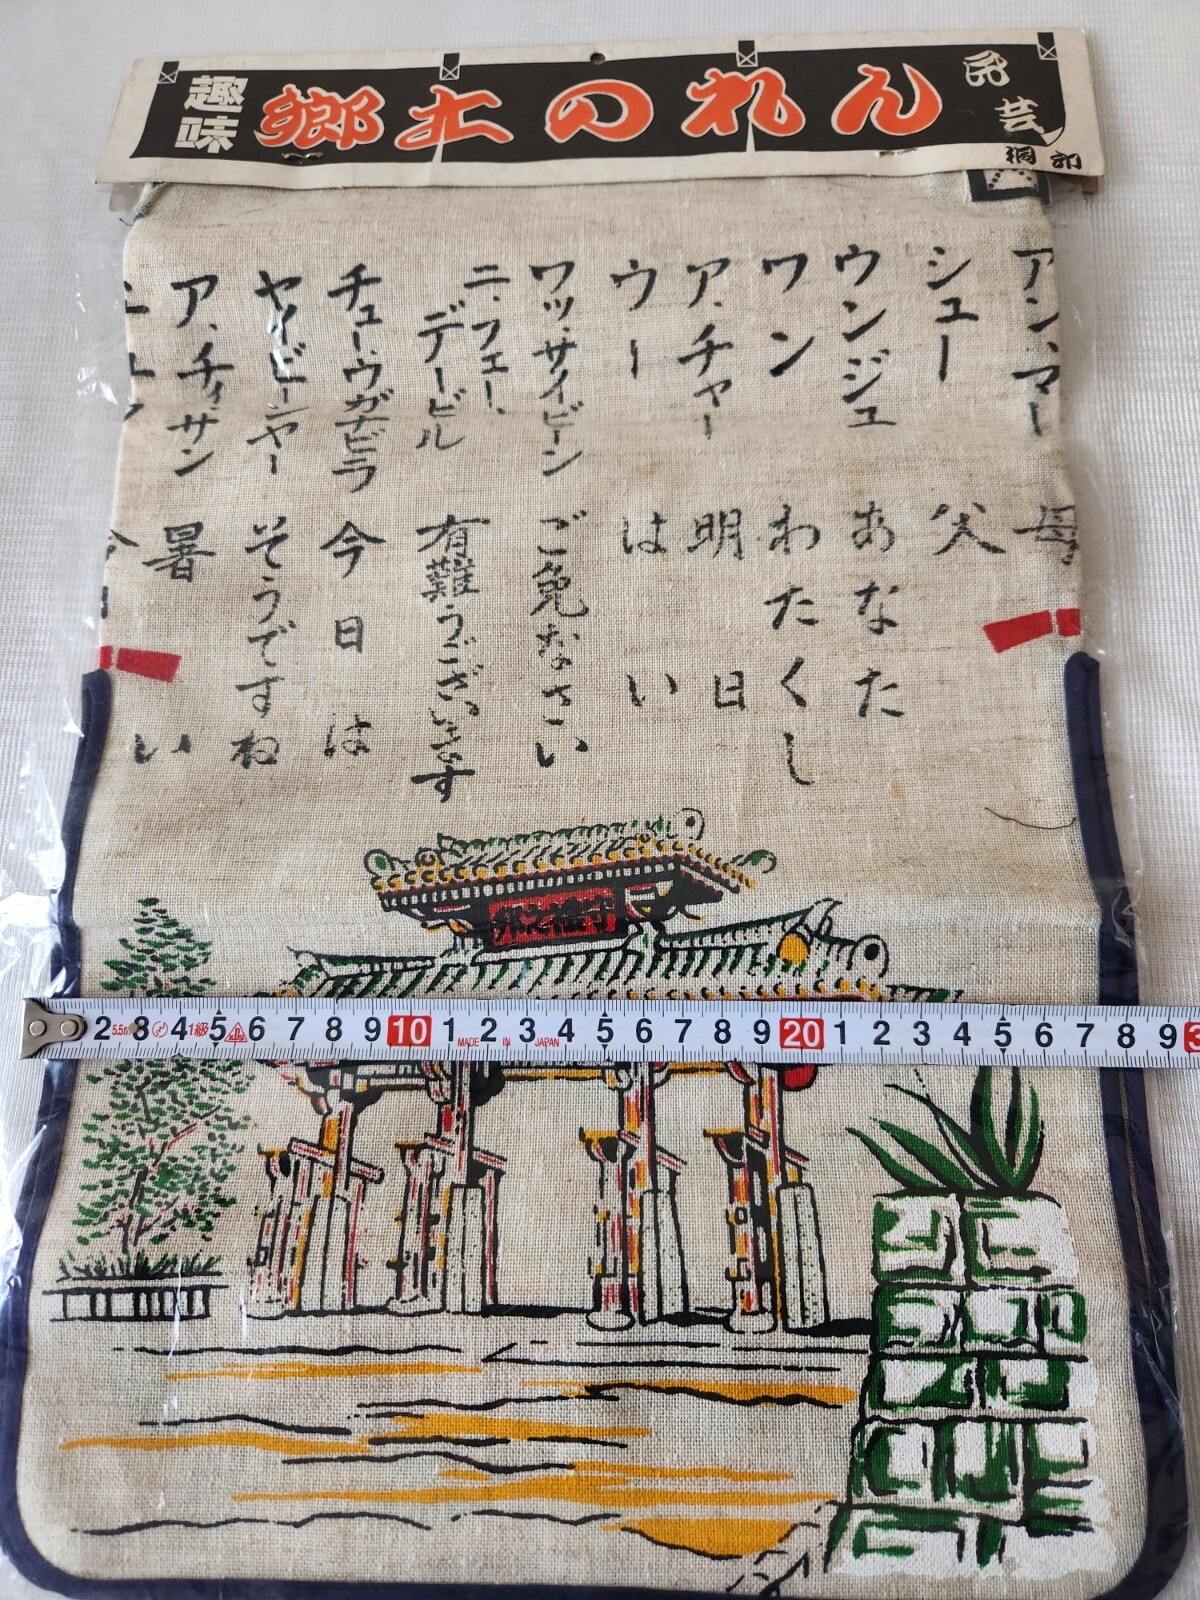 趣味
郷土のれん
民芸
アンマー 母
シュー 父
ウンジュ あなた
ワン わたくし
ア.チャー 明日
ウー はい
ワッサイビーン ご免なさい
ニ.フェー、デービル 有難うございます
チューウガナビラ 今日は
ヤイビーンヤー そうですね
ア.チィサン 暑い
守禮之邦
2 5.5m 3 4 1級 5 6 7 8 9 10 1 2 3 4 5 6 7 8 9 20 1 2 3 4 5 6 7 8 9 3
MADE IN JAPAN